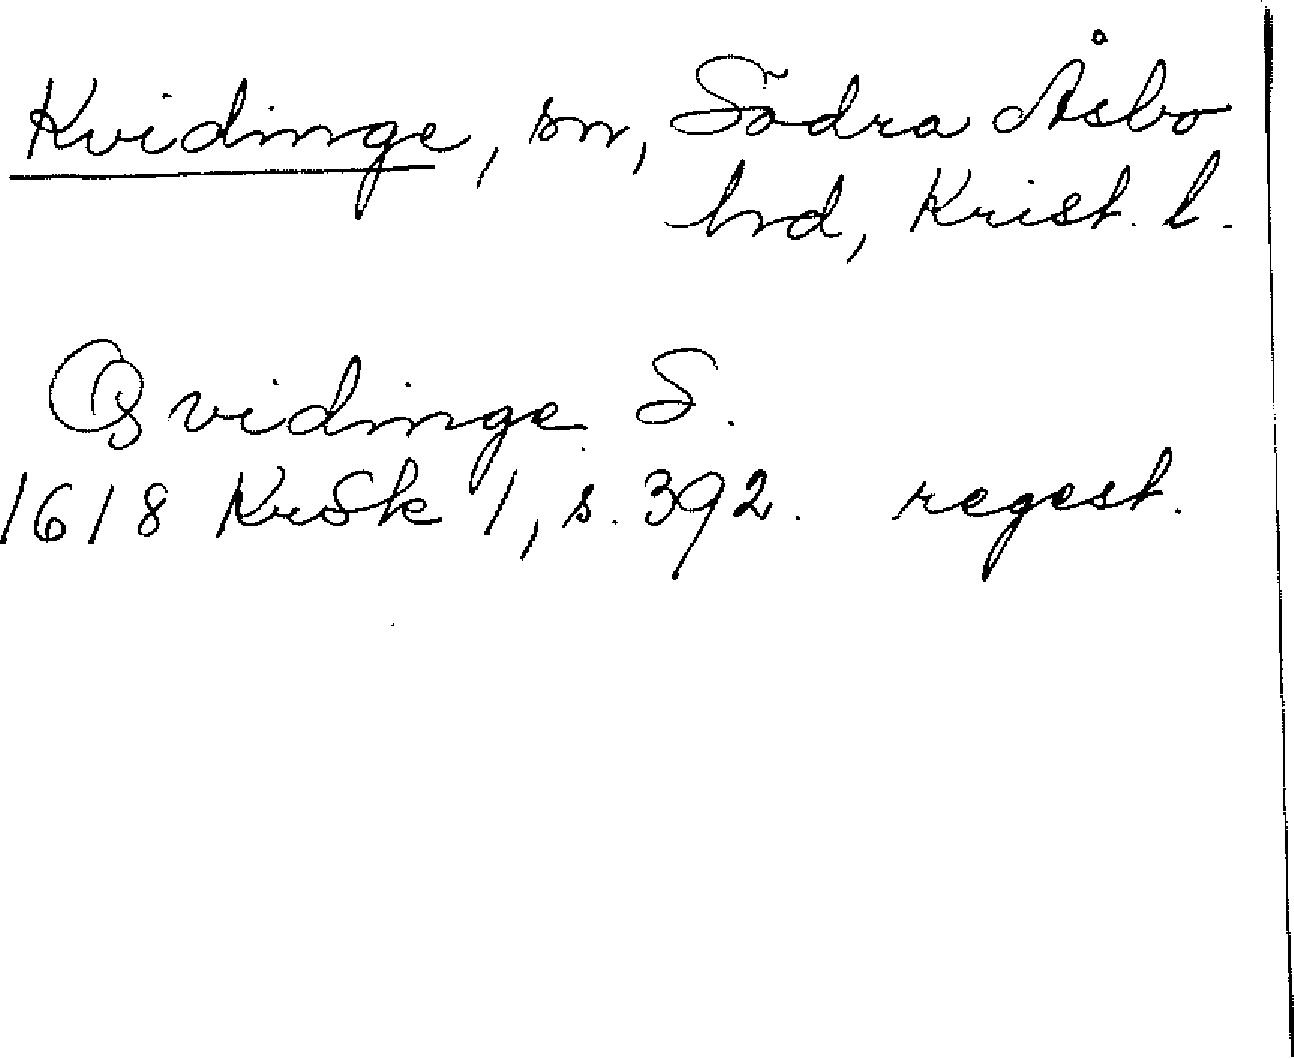 Kvidinge, sn, Södra Åsbo
hrd, Krist. l.
Qvidinge S.
1618 KrSk 1, s. 392. regest.